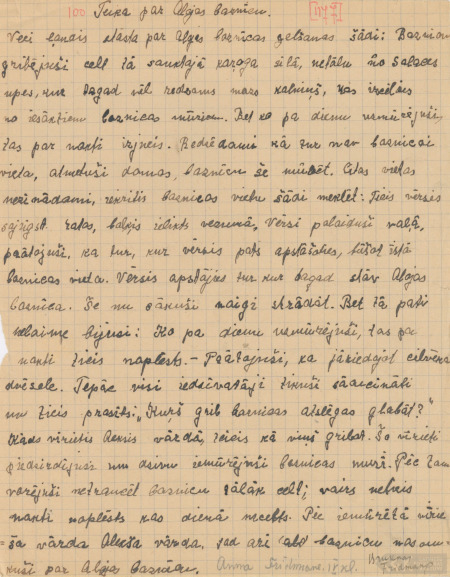 100 Teika par Alojas baznīcu.
Veci ļaudis stāsta par Alojas baznīcas celšanos šādi: Baznīcu
gribējuši celt tā sauktajā kaŗoga silā, netālu no Salacas
upes, kur tagad vēl redzams mazs kalniņš, kas izcēlies
no iesāktiem baznīcas mūriem. Bet ko pa dienu uzmūrējuši,
tas par nakti izjucis. Redzēdami kā tur nav baznīcai
vieta, atmetuši domas, baznīcu še mūrēt. Citas vietas
nezinādami, iekritis baznīcas vietu šādi meklēt: Ticis vērsis
sajūgts ratos, baļķis ielikts vezumā, Vērsi palaiduši vaļā,
prātojuši, ka tur, kur vērsis pats apstāšoties, būšot īstā
baznīcas vieta. Vērsis apstājies tur kur tagad stāv Alojas
baznīca. Še nu sākuši naigi strādāt. Bet tā pati
nelaime bijusi: Ko pa dienu uzmūrējuši, tas pa
nakti ticis noplēsts. – Prātojuši, ka jāziedojot cilvēka
dvēsele. Tepāc visi iedzīvotāji tikuši sāaicināti
un ticis prasīts: „Kuŗš grib baznīcas atslēgas glabāt?"
Kāds vīrietis Aleksis vārdā, teicis kā viņš gribot. Šo vīrieti
piedzirdījuši un dzīvu iemūrējuši baznīcas mūrī. Pēc tam
varējuši netraucēti baznīcu tālāk celt; vairs neticis
naktī noplēsts kas dienā uzcelts. Pēc iemūrētā vīrie-
ša vārda Alekša vārda, tad arī šo baznīcu nosau-
kuši par Alojas baznīcu. Anna Frīdmane, 18 g.